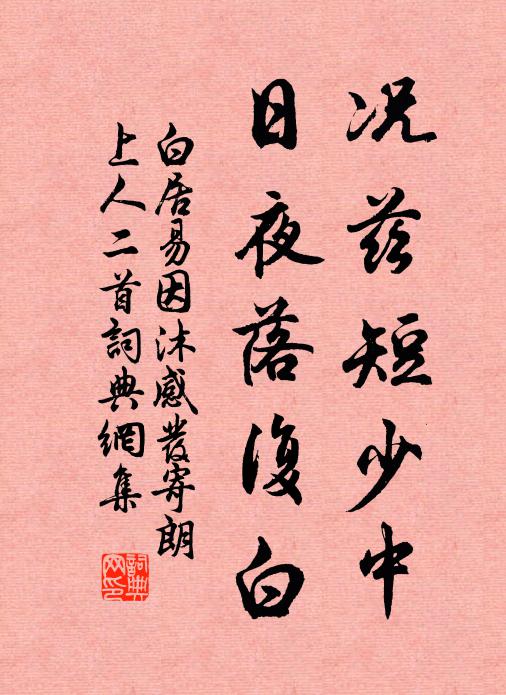 况茲短少中
日夜落復白
白居易因沐感發寄朗
上人二首詞典網集
詞典
网印